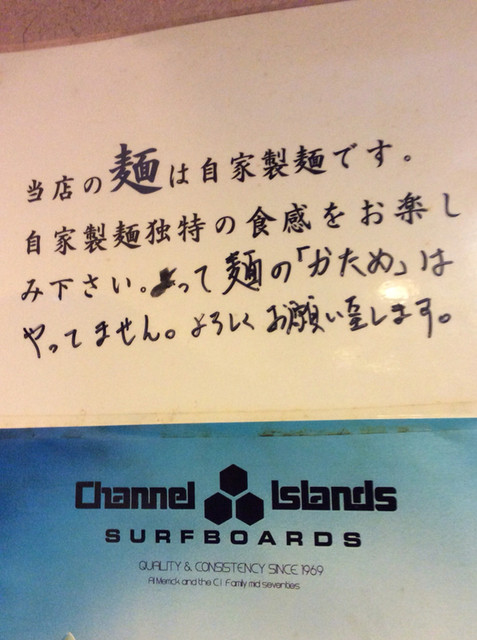 当店の麺は自家製麺です。
自家製麺独特の食感をお楽し
み下さい。よって麺の「かため」は
やってません。よろしくお願い致します。
Channel Islands
SURFBOARDS
QUALITY & CONSISTENCY SINCE 1969
Al Merrick and the C.I. Family mid seventies